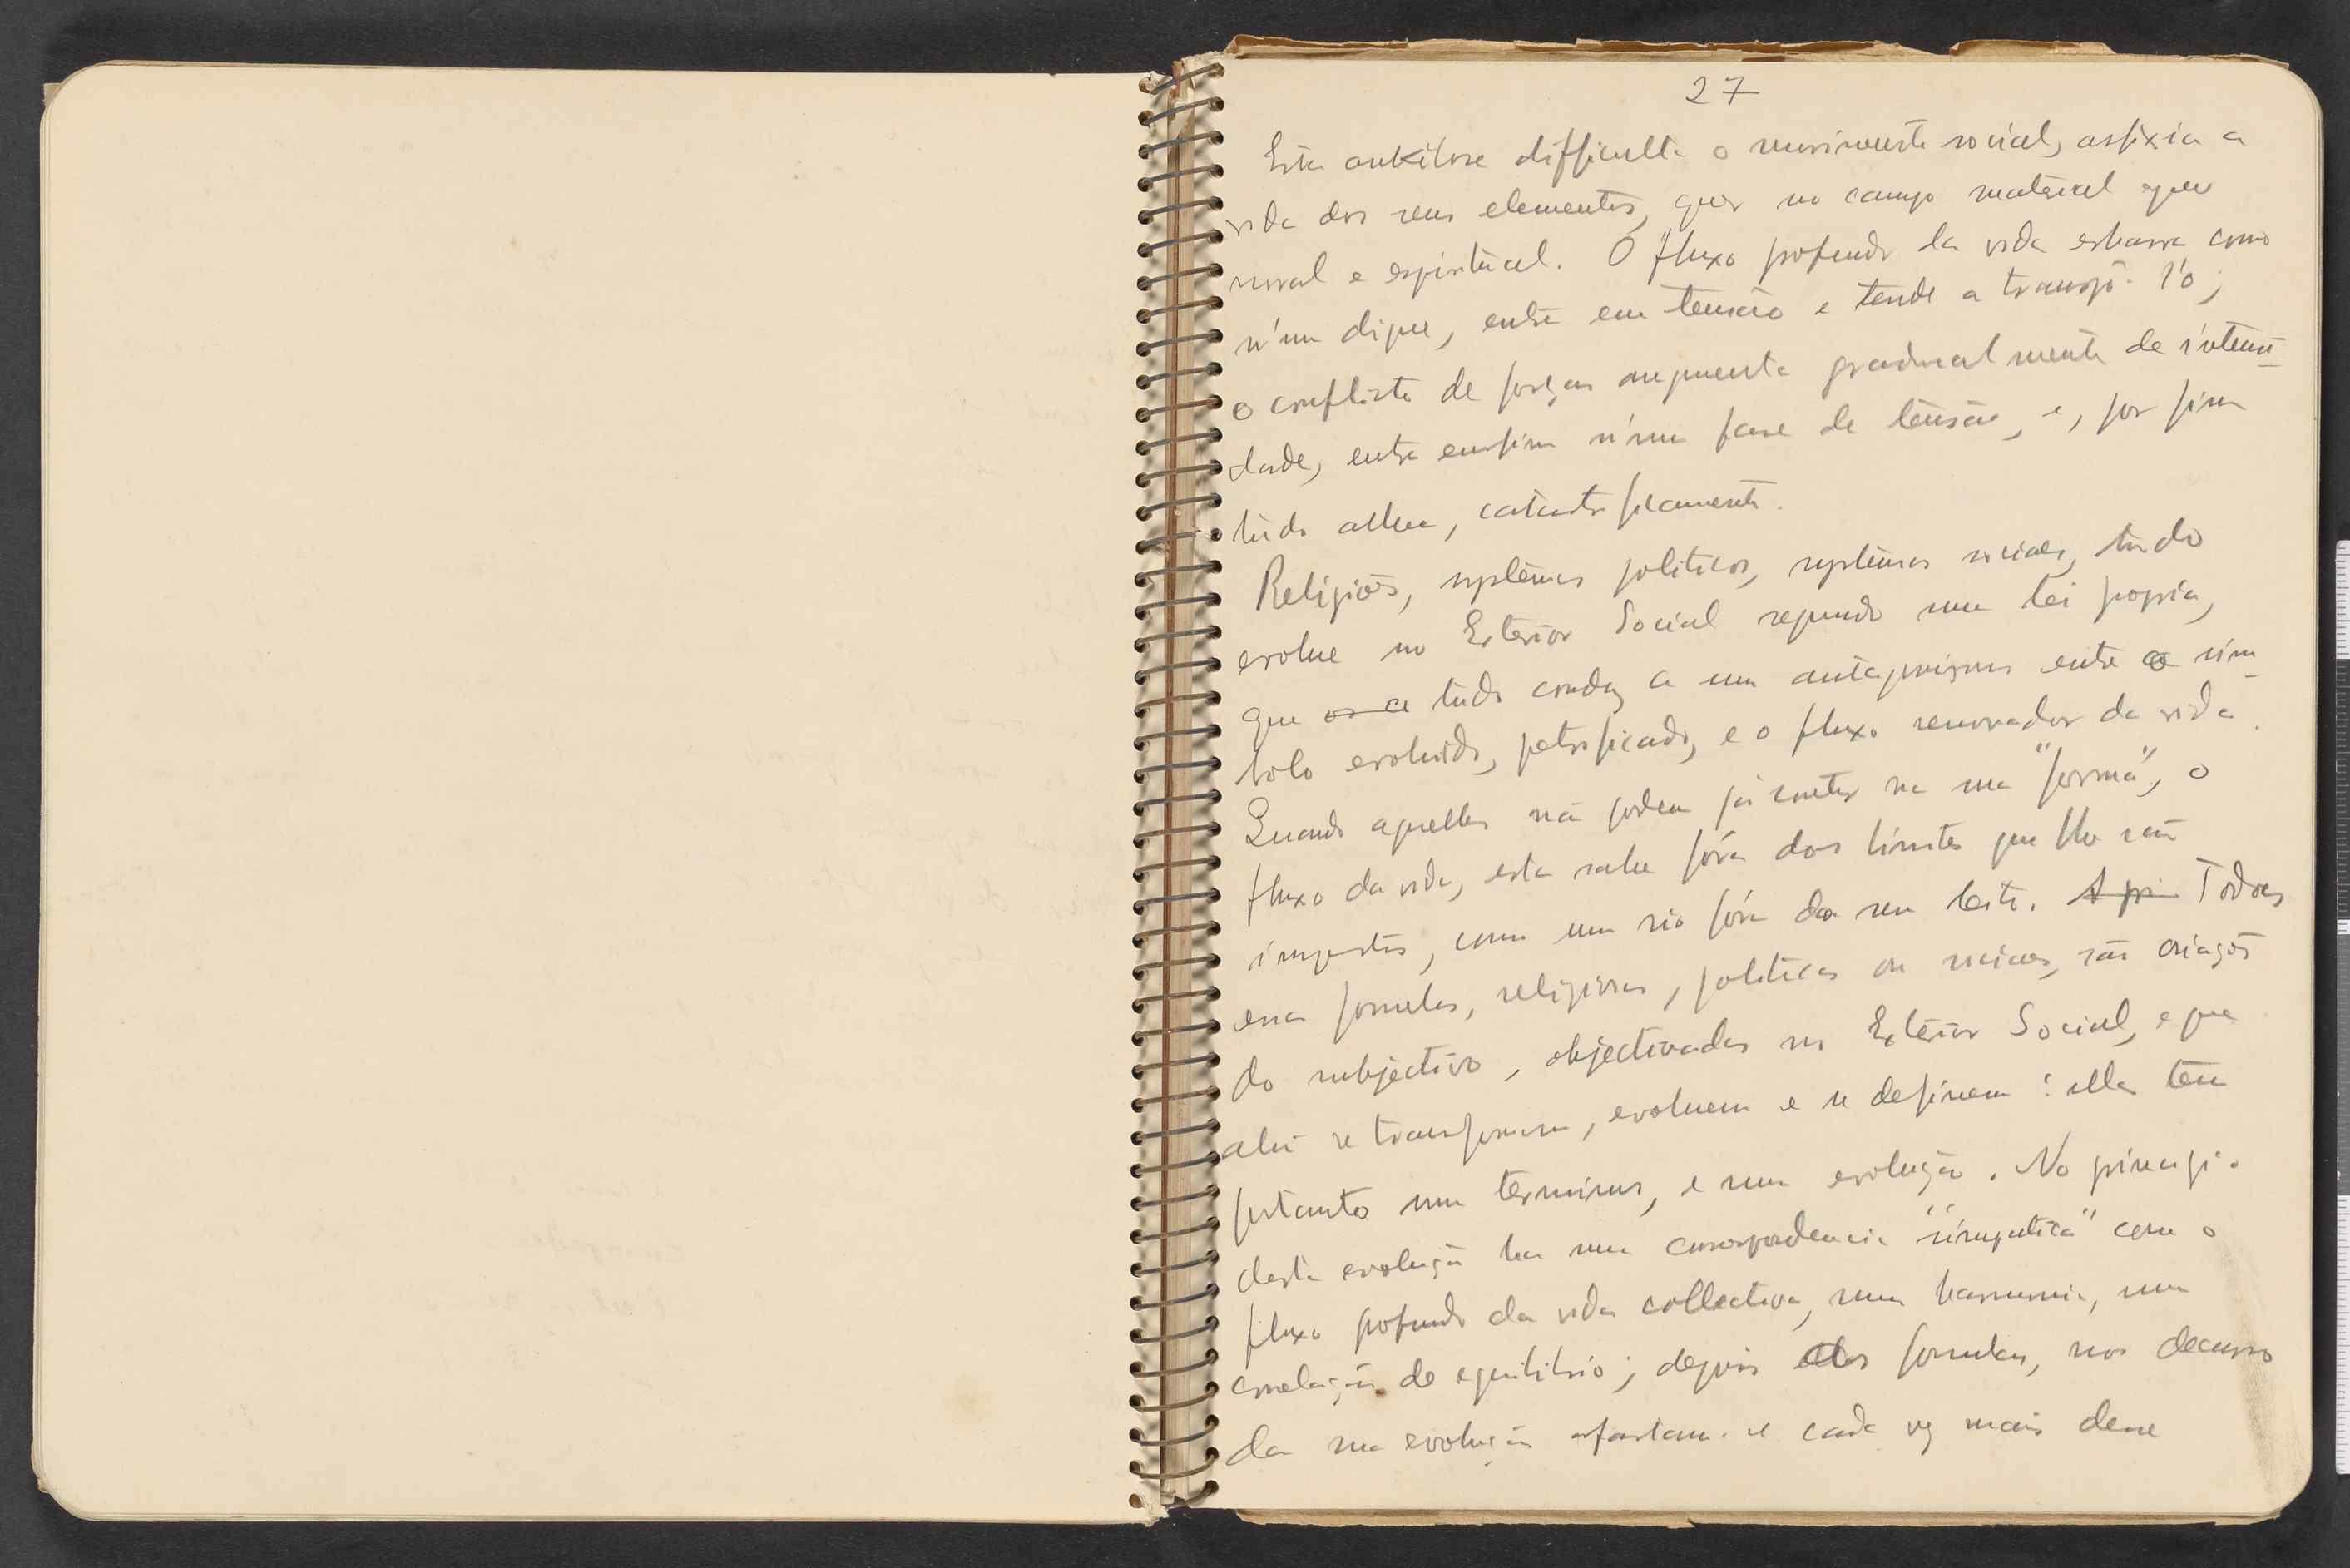 27
Esta ankilose difficulta o movimento social, asfixia a
vida dos seus elementos, quer no campo material quer
moral e espiritual. O fluxo profundo da vida esbarra como
n'um dique, entra em tensão e tende a transpô-l'o;
o conflicto de forças augmenta gradualmente de intensi-
dade, entra emfim n'uma fase de tensão, e, por fim
tudo allue, catastroficamente.
Religiões, systemas politicos, systemas sociaes, tudo
evolue no Exterior Social segundo uma lei propria,
que os a tudo conduz a um antagonismo entre o sim-
bolo evoluido, petrificado, e o fluxo renovador da vida.
Quando aquelles não podem já conter na sua "forma", o
fluxo da vida, esta sahe fóra dos limites que lhe são
impostos, como um rio fóra do seu leito. A pri Todas
essas formulas, religiosas, politicas ou sociaes, são criações
do subjectivo, objectivadas no Exterior Social, e que
ahi se transformam, evoluem e se definem: ellas têm
portanto um terminus, e uma evolução. No principio
desta evolução ha uma correspondencia "simpatica" com o
fluxo profundo da vida collectiva, uma harmonia, uma
correlação de equilibrio; depois as formulas, no decurso
da sua evolução afastam-se cada vez mais desse